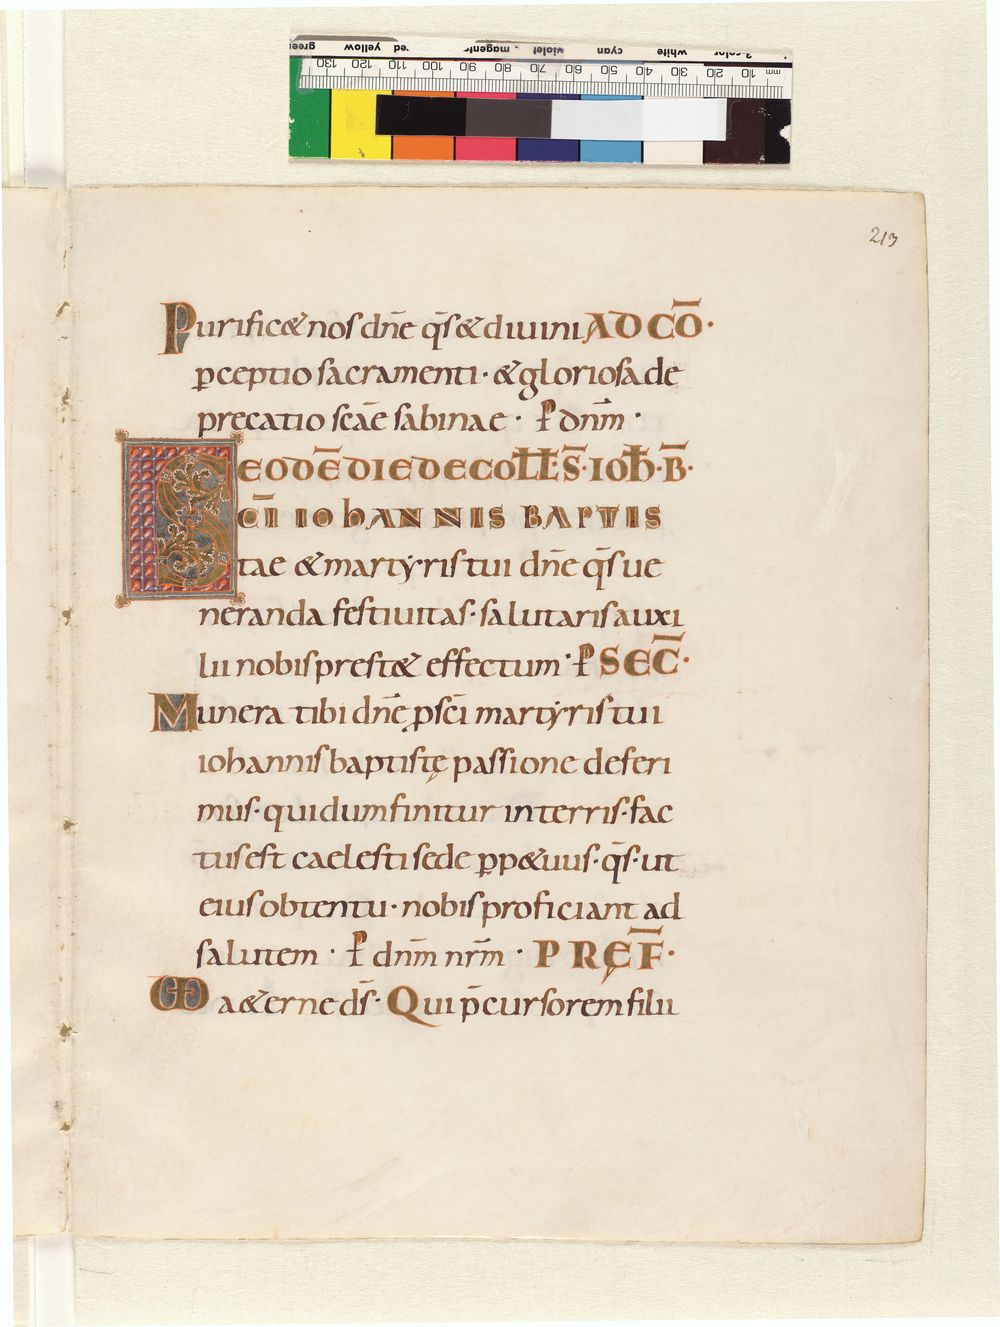 green yellow red magenta violet cyan white 3-color
130 120 110 100 90 80 70 60 50 40 30 20 10 mm
213
Purific& nos dn̄e q̄s & diuini AD CŌ·
ꝑceptio sacramenti · & gloriosa de
precatio sc̄ae sabinae · ꝑ dn̄m ·
EODĒ DIE DECOLL̄ S̄· IOH̄· B̄·
SC̄I IOhANNIS BAPTIS
tae & martẏris tui dn̄e q̄s ue
neranda festiuitas· salutaris auxi
lii nobis prest& effectum · ꝑ SEC̄·
Munera tibi dn̄e ꝓ sc̄i martẏris tui
iohannis baptistę passione deferi
mus· qui dum finitur in terris· fac
tus est caelesti sede ꝑp&uus· q̄s· ut
eius obtentu · nobis proficiant ad
salutem · ꝑ dn̄m nr̄m · PREF̄·
UD a&erne ds̄· Qui p̄cursorem filii